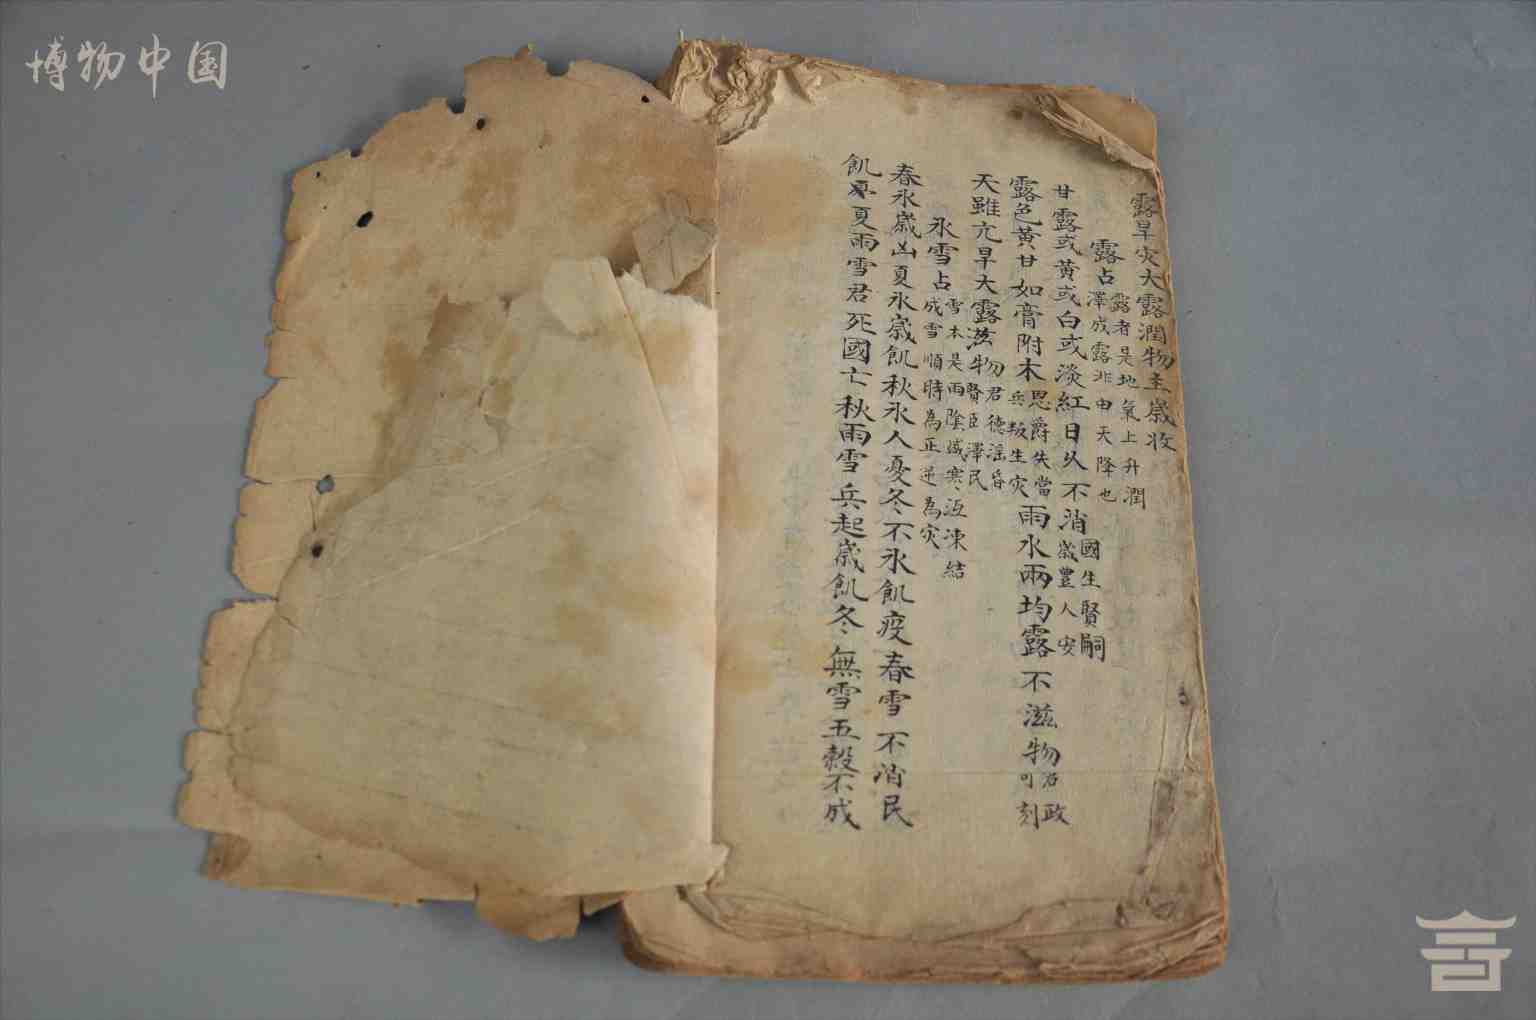 博物中国
露旱灾大露潤物主歲收
露占
露者是地氣上升潤
澤成露非由天降也
甘露或黃或白或淡紅日久不消
國生賢嗣
歲豐人安
露色黃甘如膏附木
恩爵失當
兵叛生灾
雨水兩均露不滋物
君政
可刻
天雖亢旱大露滋物
君德滛昏
賢臣澤民
氷雪占
雪本是雨陰盛寒冱凍結
成雪順時為正逆為灾
春氷歲凶夏氷歲飢秋氷人憂冬不氷飢疫春雪不消民
飢夏雨雪君死國亡秋雨雪兵起歲飢冬無雪五穀不成